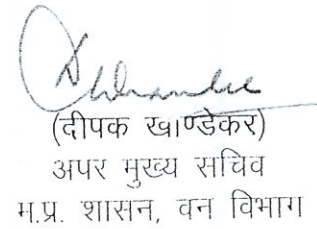 (दीपक खाण्डेकर)
अपर मुख्य सचिव
म.प्र. शासन, वन विभाग